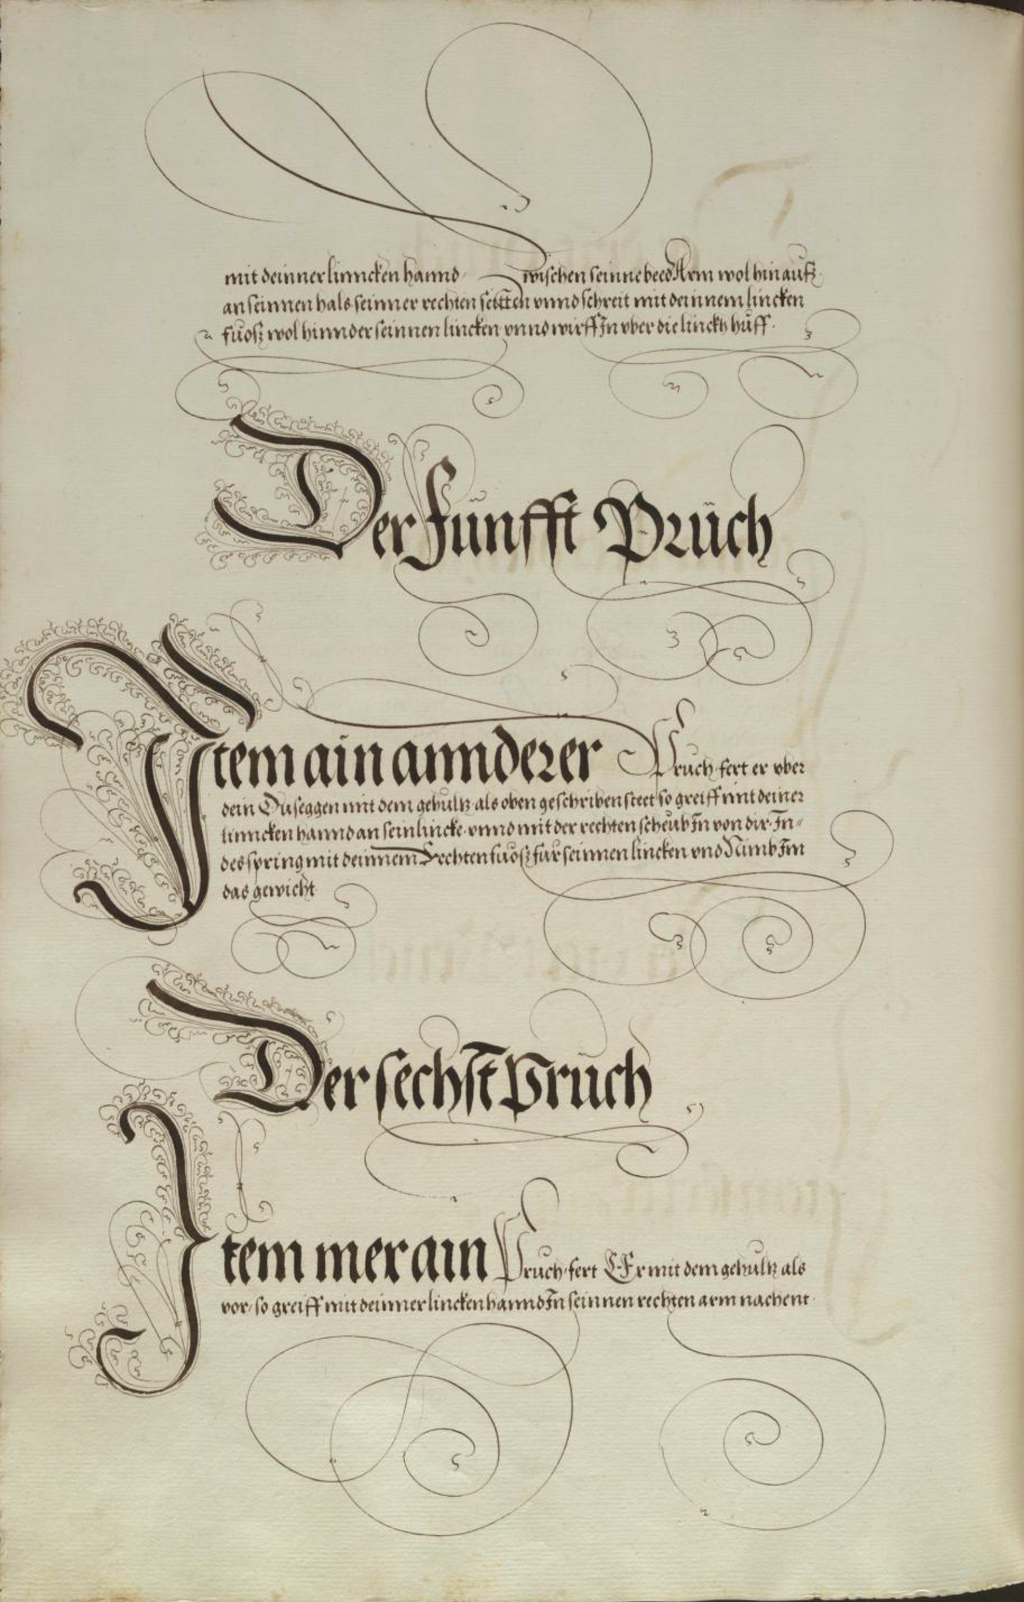 mit deinner linncken hannd zwischen seinne beed Arm wol hinaufz
an seinnen hals seinner rechten seitten vnnd schreit mit deinnem lincken
fuosz wol hinnder seinnen lincken vnnd wirff In vber die linckh hüff.
Der Fünfft Prüch
Item ain annderer Pruch fert er vber
dein Duseggen mit dem gehultz als oben geschriben steet so greiff mit deiner
linncken hannd an sein lincke vnnd mit der rechten scheub In von dir In-
des spring mit deinnem Rechten fuosz für seinnen lincken vnd Nimb Im
das gewicht
Der sechst Prüch
Item mer ain Pruch fert Er mit dem gehultz als
vor, so greiff mit deinner lincken hannd In seinnen rechten arm nachent